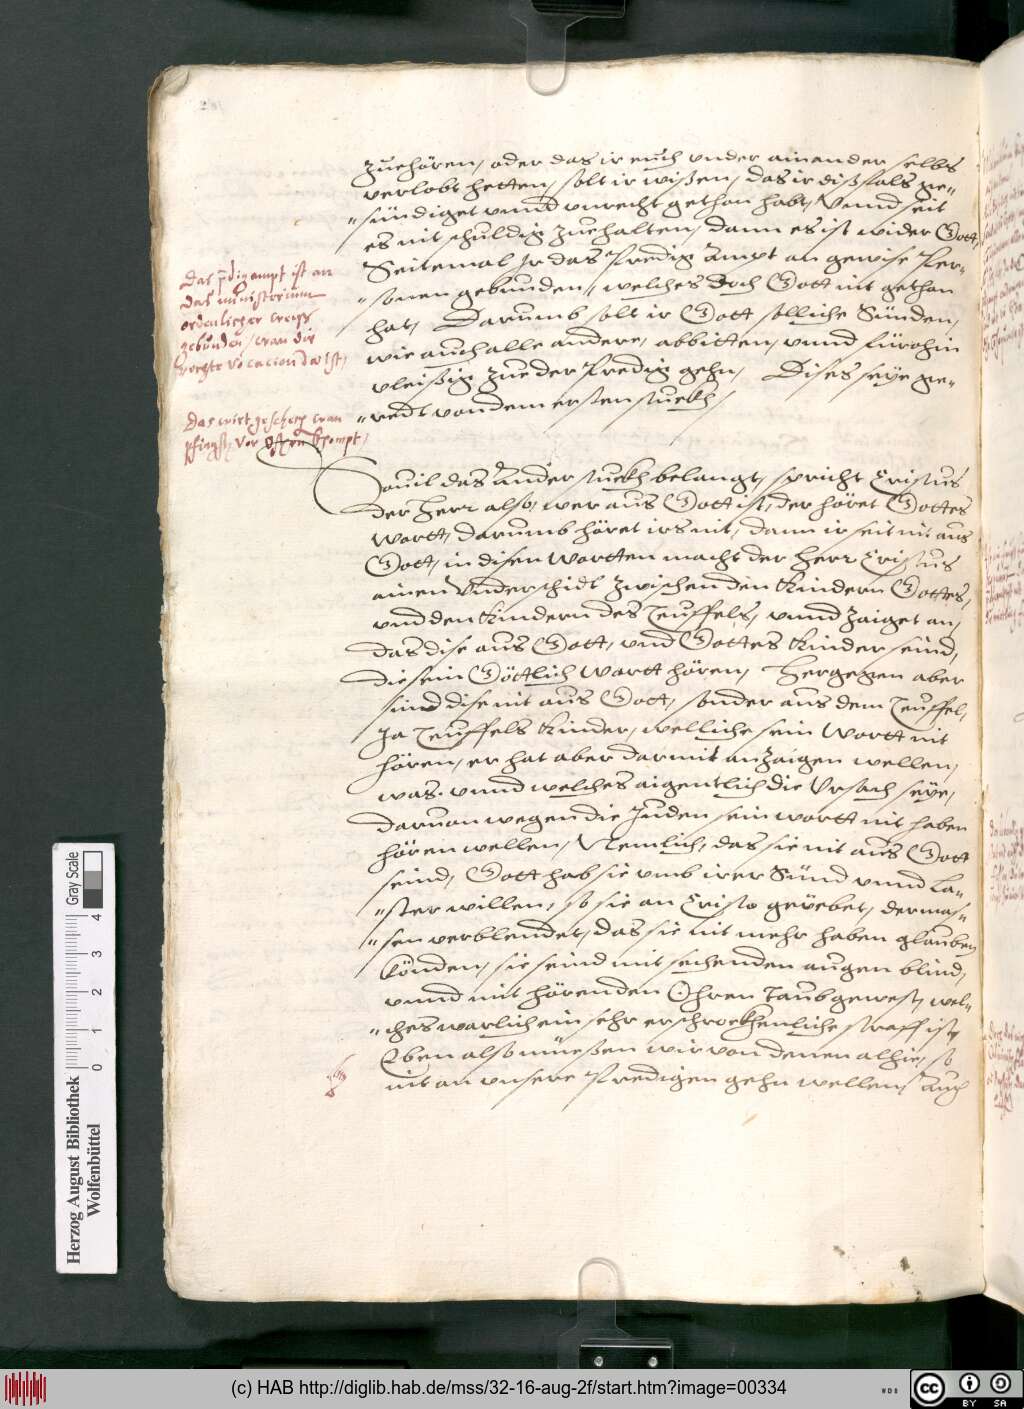 zuehören, oder das ir euch vnder ainander selbs
verlobt hetten, solt ir wißen, das ir dißfals ge„
„sündiget vnnd vnrecht gethon habt, Vnnd seit
es nit schuldig zuehalten, dann es ist wider Gott,
Seitemal Ir das Predig Ampt an gewise Per„
„sonen gebunden, welches doch Gott nit gethon
hat, Darumb solt ir Gott solliche Sünden,
wie auch alle andere, abbitten, vnnd fürohin
vleißig zue der Predig gehn, Dises seye ge„
„redt von dem ersten stuckh,
Das p̄digampt ist an
das ministerium
ordenlicher
gebunden, wan die
rechte vocacion da ist,
Das wirt geschehen wan
pfingst, vor kompt,
Souil das Ander stuckh belangt, spricht Cristus
der Herr also, wer aus Gott ist, der höret Gottes
Wortt, darumb höret irs nit, dann ir seit nit aus
Gott, in disen Wortten macht der Herr Cristus
ainen Vnderschidt zwischen den Kindern Gottes,
vnd den Kindern des Teuffels, vnnd zaiget an,
das dise aus Gott, vnd Gottes Kinder seind,
die sein Göttlich Wortt hören, Hergegen aber
sind dise nit aus Gott, sonder aus dem Teuffel,
Ja Teuffels Kinder, welliche sein Wortt nit
hören, er hat aber darmit anzaigen wellen,
was. vnnd welches aigentlich die Vrsach seye,
daruon wegen die Juden sein wortt nit haben
hören wellen, Nemlich, das sie nit aus Gott
seind, Gott hab sie vmb irer Sünd vnnd La„
„ster willen, so sie an Cristo geyebet, dermas„
„sen verblendet, das sie nit mehr haben glauben
Könden, sie seind mit sechenden augen blind,
vnnd mit hörenden Ohren Taub gewest, wel„
„ches warlich ein sehr erschrockhenliche straff ist,
Eben also müeßen wir von denen alhie, so
nit an vnsere Predigen gehn wellen, Auch
Herzog August Bibliothek
Wolfenbüttel
0 1 2 3 4
Gray Scale
(c) HAB http://diglib.hab.de/mss/32-16-aug-2f/start.htm?image=00334
WDB
cc
BY SA